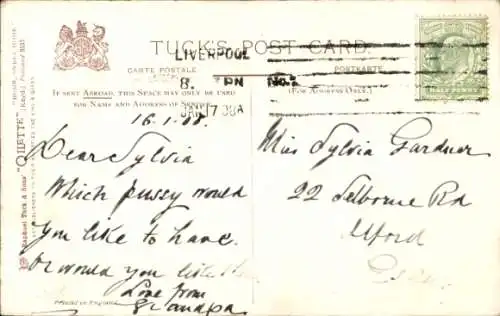 TUCK'S POST CARD
CARTE POSTALE
POSTKARTE
LIVERPOOL
8. PM No.
JAN 17 08
IF SENT ABROAD, THIS SPACE MAY ONLY BE USED
FOR NAME AND ADDRESS OF SENDER.
(FOR ADDRESS ONLY.)
HALF PENNY
Raphael Tuck & Sons' "OILETTE"
16.1.08.
Dear Sylvia
Which pussy would
you like to have
or would you like
Love from
Grandpa
Miss Sylvia Gardner
22 Selborne Rd
Ilford